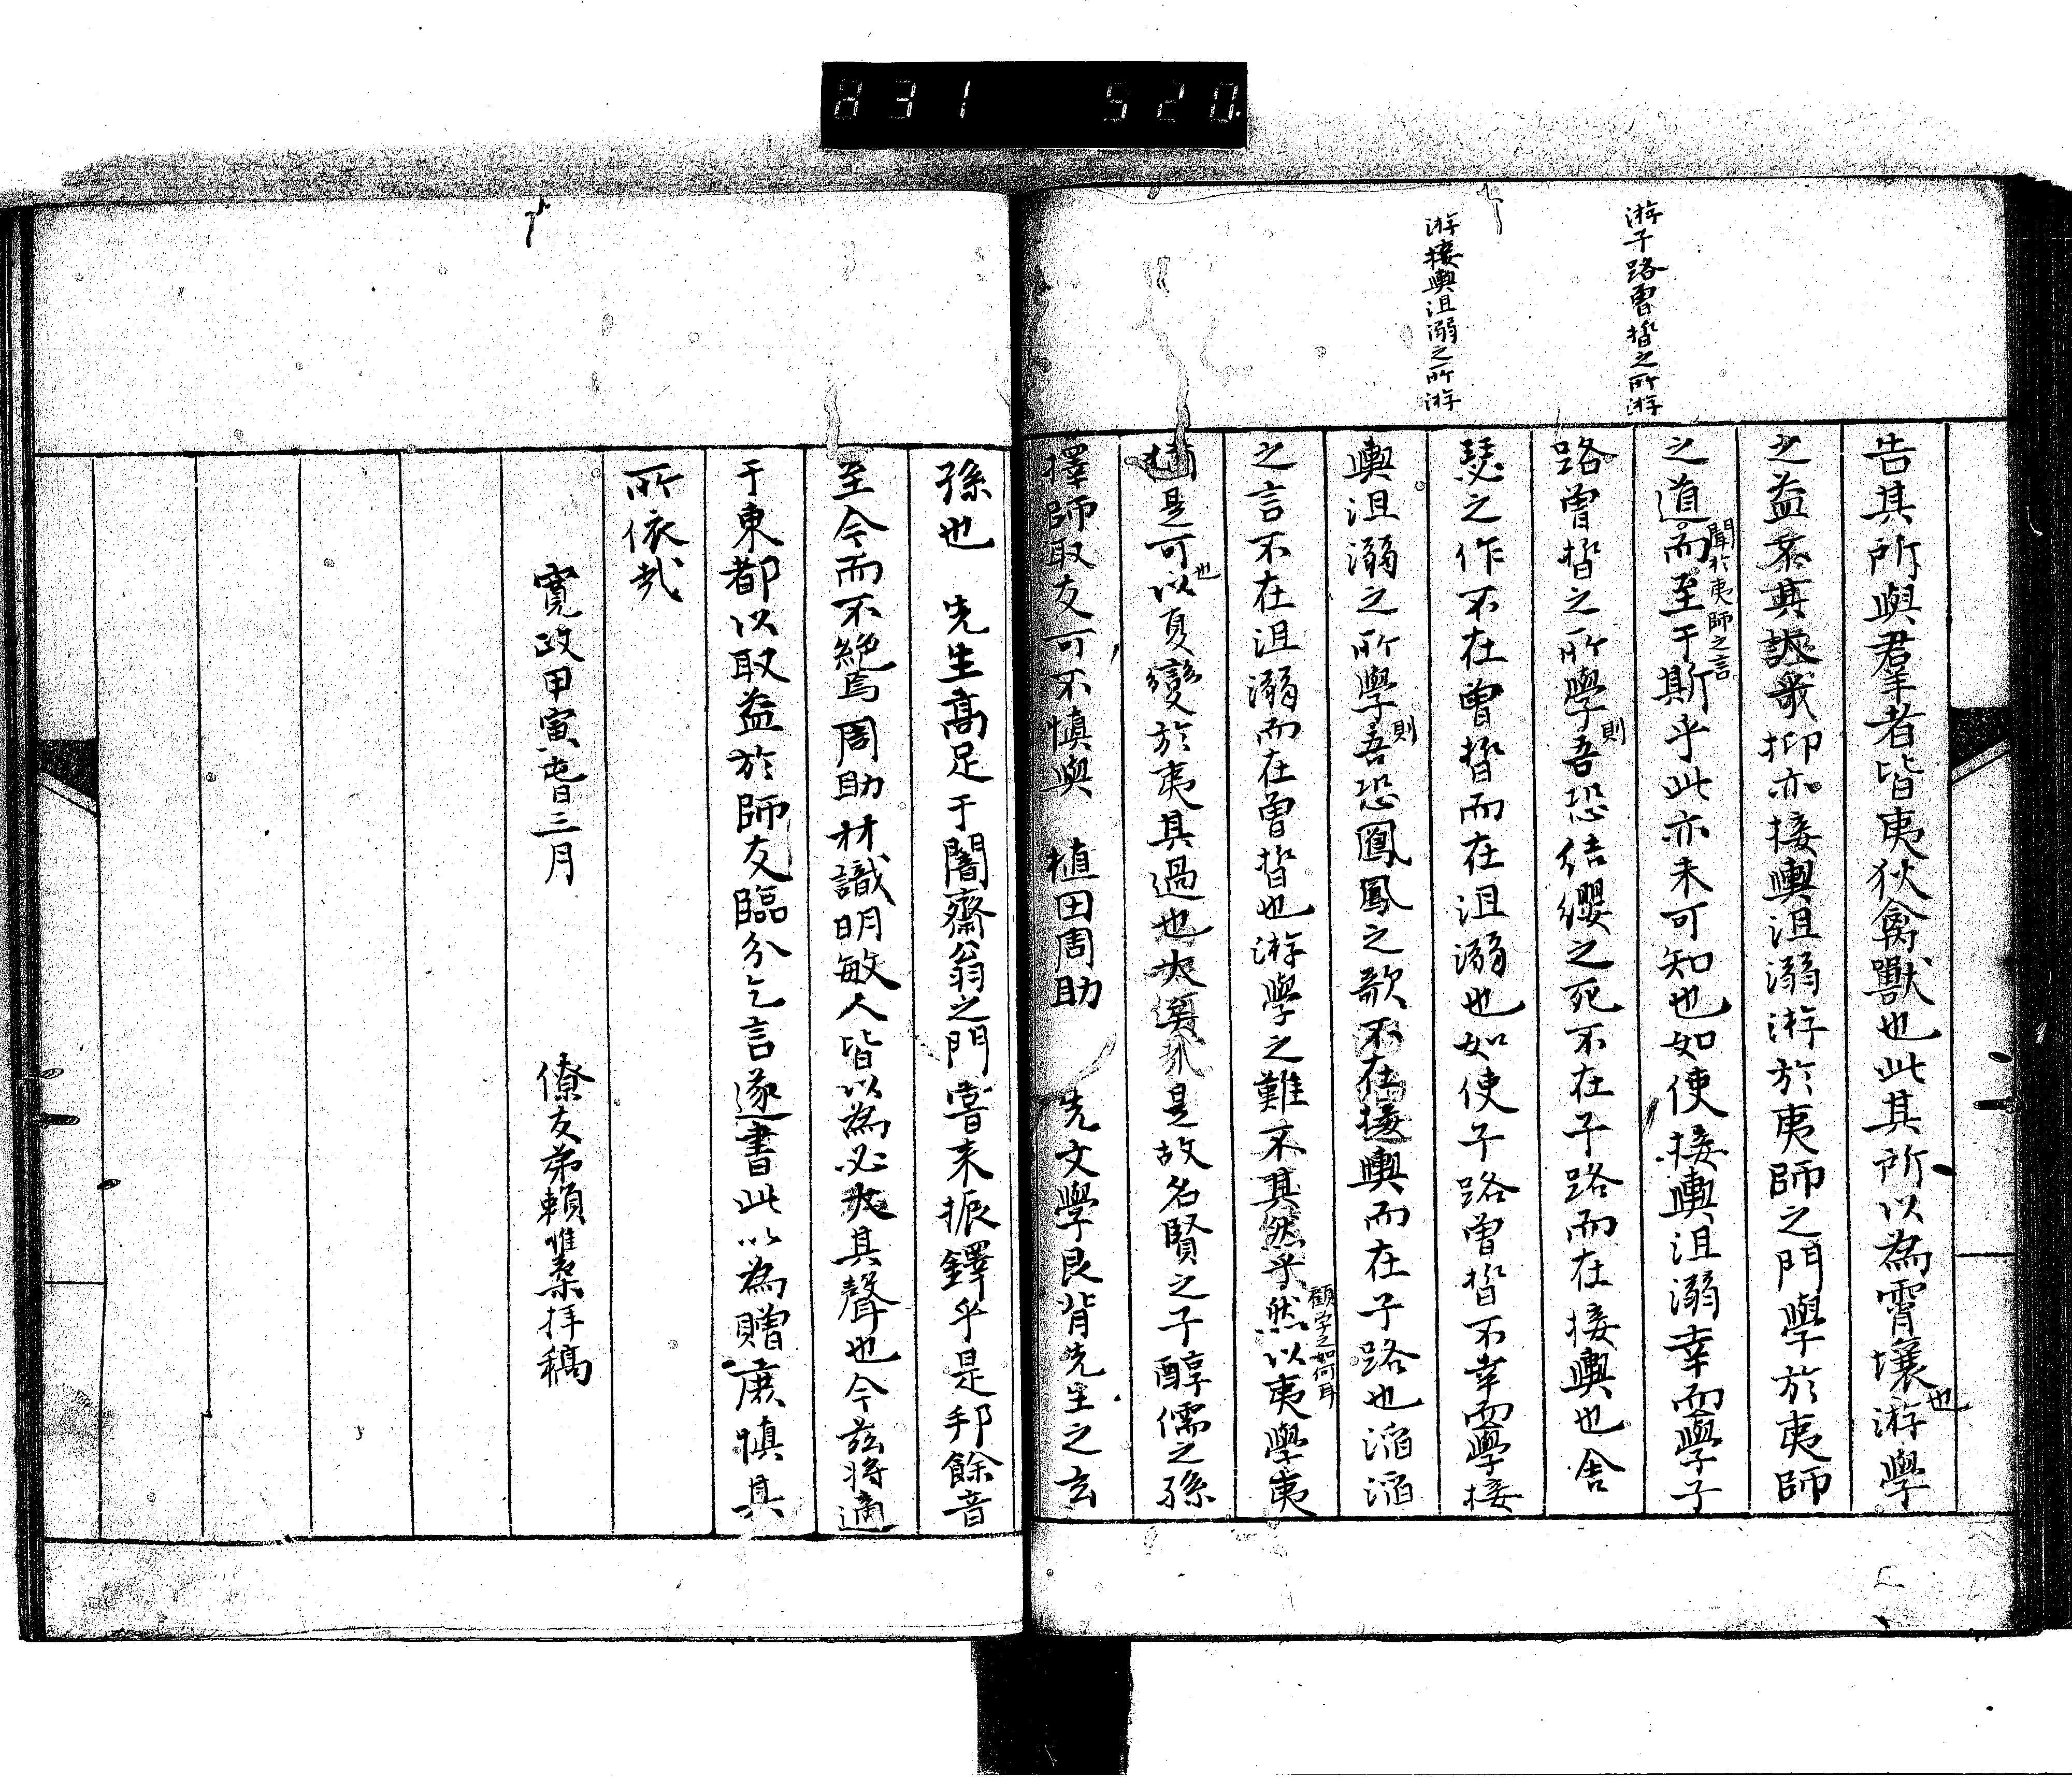 831 520
游子路曾晳之所游
游接輿沮溺之所游
告其所與群者皆夷狄禽獸也此其所以為霄壤也游學
之益哉抑亦接輿沮溺游於夷師之門學於夷師
之道而至于斯乎此亦未可知也如使接輿沮溺幸而學子
聞於夷師之言
路曾晳之所學則吾恐結纓之死不在子路而在接輿也舍
瑟之作不在曾晳而在沮溺也如使子路曾晳不幸而學接
輿沮溺之所學則吾恐鳳鳳之歌不在接輿而在子路也滔滔
之言不在沮溺而在曾晳也游學之難不其然乎然以夷學夷
顧学之如何耳
猶是可也以夏變於夷其過也大是故名賢之子醇儒之孫
擇師取友可不慎與 植田周助 先文學艮背先生之玄
孫也 先生高足于闇齋翁之門嘗来振鐸乎是邦餘音
至今而不絶焉周助材識明敏人皆以為必大其聲也今茲將適
于東都以取益於師友臨分乞言遂書此以為贈庶慎其
所依哉
寛政甲寅春三月
僚友弟頼惟柔拝稿